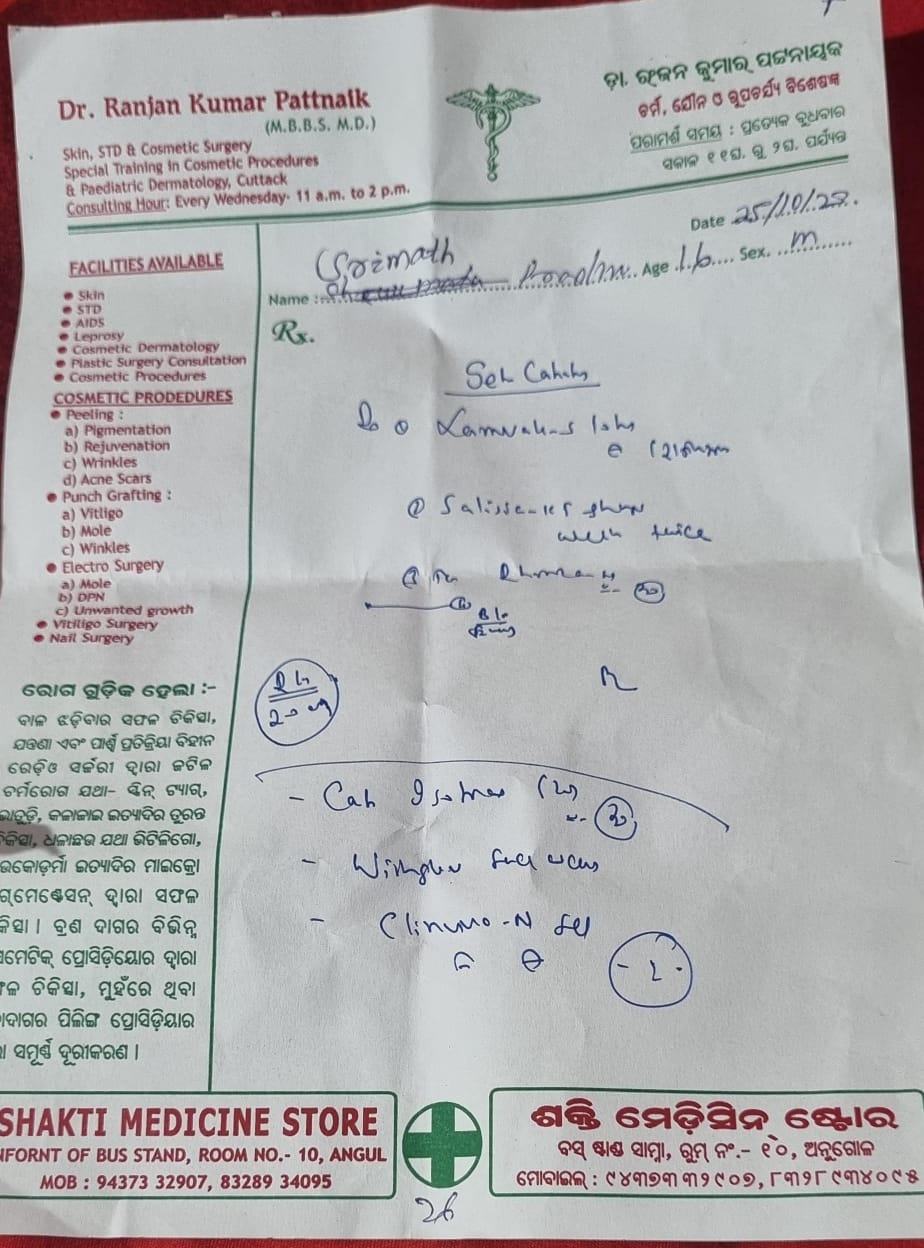 Dr. Ranjan Kumar Pattnaik
(M.B.B.S. M.D.)
Skin, STD & Cosmetic Surgery
Special Training in Cosmetic Procedures
& Paediatric Dermatology, Cuttack
Consulting Hour: Every Wednesday- 11 a.m. to 2 p.m.
ଡ଼ା. ରଂଜନ କୁମାର ପଟ୍ଟନାୟକ
ଚର୍ମ, ଯୌନ ଓ ରୂପଚର୍ଯ୍ୟା ବିଶେଷଜ୍ଞ
ପରାମର୍ଶ ସମୟ : ପ୍ରତ୍ୟେକ ବୁଧବାର
ସକାଳ ୧୧ଘ. ରୁ ୨ଘ. ପର୍ଯ୍ୟନ୍ତ
Date 25/10/23
Srimath
Name : Age 16 Sex. m
Rx.
FACILITIES AVAILABLE
Skin
STD
AIDS
Leprosy
Cosmetic Dermatology
Plastic Surgery Consultation
Cosmetic Procedures
COSMETIC PRODEDURES
Peeling :
a) Pigmentation
b) Rejuvenation
c) Wrinkles
d) Acne Scars
Punch Grafting :
a) Vitligo
b) Mole
c) Winkles
Electro Surgery
a) Mole
b) DPN
c) Unwanted growth
Vitiligo Surgery
Nail Surgery
twice
- Clinmo-N
ରୋଗ ଗୁଡ଼ିକ ହେଲା :-
ବାଳ ଝଡ଼ିବାର ସଫଳ ଚିକିତ୍ସା,
ଯନ୍ତ୍ରଣା ଏବଂ ପାର୍ଶ୍ୱ ପ୍ରତିକ୍ରିୟା ବିହୀନ
ରେଡ଼ିଓ ସର୍ଜରୀ ଦ୍ୱାରା ଜଟିଳ
ଚର୍ମରୋଗ ଯଥା- ସ୍କିନ୍ ଟ୍ୟାଗ୍,
କଳାଜାଇ ଇତ୍ୟାଦିର ତୁରନ୍ତ
ଧଳାଛଉ ଯଥା ଭିଟିଲିଗୋ,
ଇତ୍ୟାଦିର ମାଇକ୍ରୋ
ଦ୍ୱାରା ସଫଳ
ବ୍ରଣ ଦାଗର ବିଭିନ୍ନ
ପ୍ରୋସିଡ଼ିୟୋର ଦ୍ୱାରା
ଚିକିତ୍ସା, ମୁହଁରେ ଥିବା
ପିଲିଙ୍ଗ ପ୍ରୋସିଡ଼ିୟାର
ସମ୍ପୂର୍ଣ୍ଣ ଦୂରୀକରଣ ।
SHAKTI MEDICINE STORE
INFORNT OF BUS STAND, ROOM NO.- 10, ANGUL
MOB : 94373 32907, 83289 34095
ଶକ୍ତି ମେଡ଼ିସିନ୍ ଷ୍ଟୋର
ବସ୍ ଷ୍ଟାଣ୍ଡ ସାମ୍ନା, ରୁମ୍ ନଂ.- ୧୦, ଅନୁଗୋଳ
ମୋବାଇଲ୍ : ୯୪୩୭୩ ୩୨୯୦୭, ୮୩୨୮୯୩୪୦୯୫
26